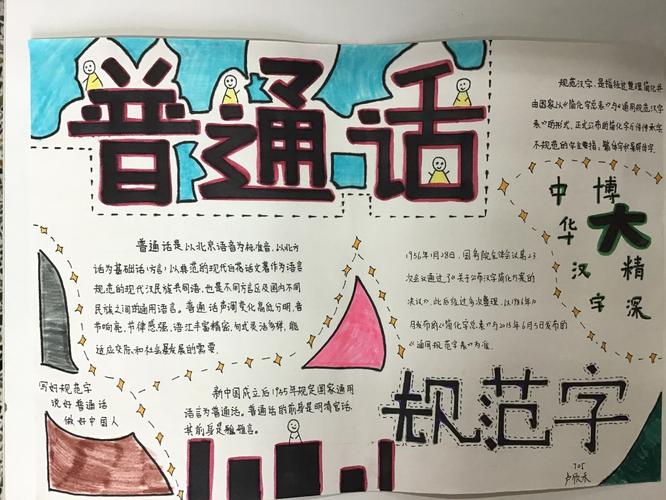 普通话
规范汉字,是指经过整理简化并
由国家以《简化字总表》与《通用规范汉字
表》的形式,正式公布的简化字与传承字
不规范的字主要指,繁体字和异体字.
中华汉字
博大精深
普通话是以北京语音为标准音,以北方
话为基础话(方言),以典范的现代白话文著作为语言
规范的现代汉民族共同语,也是不同方言及国内不同
民族之间的通用语言。普通话声调变化高低分明,音
节响亮,节律感强,语汇丰富精密,句式灵活多样,能
适应交际和社会发展的需要.
1956年1月28日,国务院全体会议第23
次会议通过了《关于公布汉字简化方案的
决议》,此后经过多次整理,以1986年10
月发布的《简化字总表》与2013年6月5日发布的
《通用规范字表》为准.
写好规范字
说好普通话
做好中国人
新中国成立后1955年规定国家通用
语言为普通话。普通话的前身是明清官话,
其前身是雅言。
规范字
705
卢欣禾